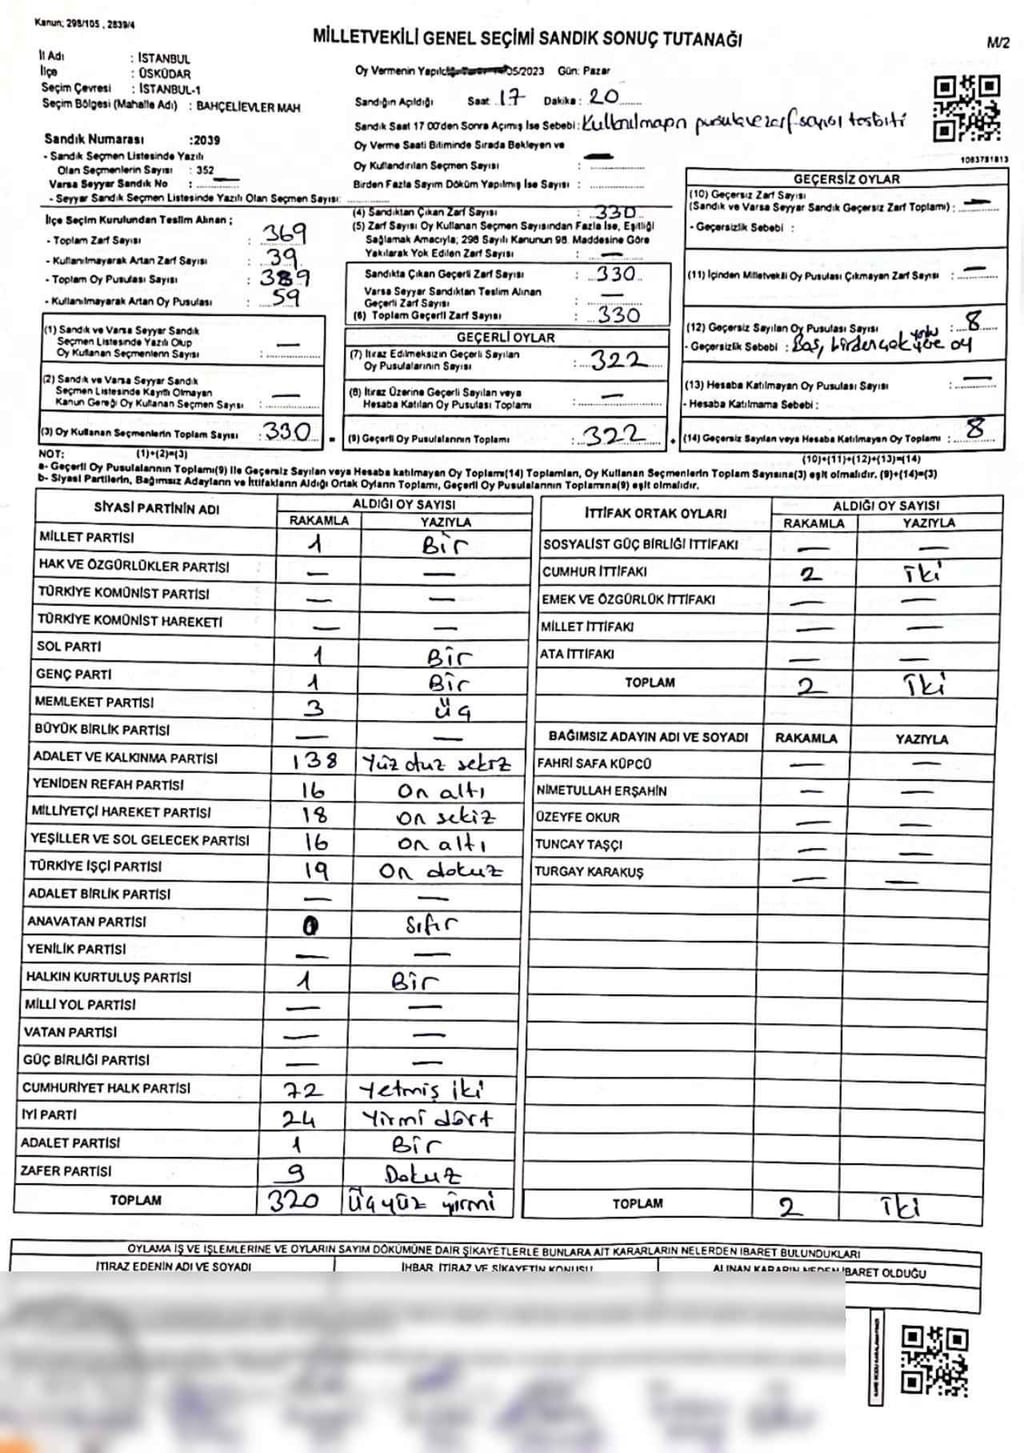 Kanun; 298/105 , 2839/4
MİLLETVEKİLİ GENEL SEÇİMİ SANDIK SONUÇ TUTANAĞI
M/2
İl Adı : İSTANBUL
İlçe : ÜSKÜDAR
Seçim Çevresi : İSTANBUL-1
Seçim Bölgesi (Mahalle Adı) : BAHÇELİEVLER MAH
Oy Vermenin 05/2023 Gün: Pazar
Sandığın Açıldığı Saat 17 Dakika: 20
Sandık Saat 17 00'den Sonra Açımış İse Sebebi: Kullanılmayan pusula ve zarf sayısı tesbiti
Oy Verme Saati Bitiminde Sırada Bekleyen ve
Oy Kullandırılan Seçmen Sayısı : —
Birden Fazla Sayım Döküm Yapılmış İse Sayısı :
1083781813
Sandık Numarası :2039
- Sandık Seçmen Listesinde Yazılı
Olan Seçmenlerin Sayısı : 352
Varsa Seyyar Sandık No : —
- Seyyar Sandık Seçmen Listesinde Yazılı Olan Seçmen Sayısı:
İlçe Seçim Kurulundan Teslim Alınan ;
- Toplam Zarf Sayısı : 369
- Kullanılmayarak Artan Zarf Sayısı : 39
- Toplam Oy Pusulası Sayısı : 389
- Kullanılmayarak Artan Oy Pusulası : 59
(1) Sandık ve Varsa Seyyar Sandık
Seçmen Listesinde Yazılı Olup
Oy Kullanan Seçmenlerin Sayısı : —
(2) Sandık ve Varsa Seyyar Sandık
Seçmen Listesinde Kayıtlı Olmayan
Kanun Gereği Oy Kullanan Seçmen Sayısı : —
(3) Oy Kullanan Seçmenlerin Toplam Sayısı : 330
(4) Sandıktan Çıkan Zarf Sayısı : 330
(5) Zarf Sayısı Oy Kullanan Seçmen Sayısından Fazla İse, Eşitliği
Sağlamak Amacıyla; 298 Sayılı Kanunun 98. Maddesine Göre
Yakılarak Yok Edilen Zarf Sayısı : —
Sandıkta Çıkan Geçerli Zarf Sayısı : 330
Varsa Seyyar Sandıktan Teslim Alınan
Geçerli Zarf Sayısı : —
(6) Toplam Geçerli Zarf Sayısı : 330
GEÇERLİ OYLAR
(7) İtiraz Edilmeksizin Geçerli Sayılan
Oy Pusulalarının Sayısı : 322
(8) İtiraz Üzerine Geçerli Sayılan veya
Hesaba Katılan Oy Pusulası Toplamı : —
(9) Geçerli Oy Pusulalarının Toplamı : 322
GEÇERSİZ OYLAR
(10) Geçersiz Zarf Sayısı
(Sandık ve Varsa Seyyar Sandık Geçersiz Zarf Toplamı) : —
- Geçersizlik Sebebi :
(11) İçinden Milletvekili Oy Pusulası Çıkmayan Zarf Sayısı : —
(12) Geçersiz Sayılan Oy Pusulası Sayısı : 8
- Geçersizlik Sebebi : Boş, birden çok oy
(13) Hesaba Katılmayan Oy Pusulası Sayısı : —
- Hesaba Katılmama Sebebi :
(14) Geçersiz Sayılan veya Hesaba Katılmayan Oy Toplamı : 8
NOT: (1)+(2)=(3) (10)+(11)+(12)+(13)=(14)
a- Geçerli Oy Pusulalarının Toplamı(9) ile Geçersiz Sayılan veya Hesaba katılmayan Oy Toplamı(14) Toplamları, Oy Kullanan Seçmenlerin Toplam Sayısına(3) eşit olmalıdır. (9)+(14)=(3)
b- Siyasi Partilerin, Bağımsız Adayların ve İttifakların Aldığı Ortak Oyların Toplamı, Geçerli Oy Pusulalarının Toplamına(9) eşit olmalıdır.
SİYASİ PARTİNİN ADI ALDIĞI OY SAYISI
RAKAMLA YAZIYLA
MİLLET PARTİSİ 1 Bir
HAK VE ÖZGÜRLÜKLER PARTİSİ — —
TÜRKİYE KOMÜNİST PARTİSİ — —
TÜRKİYE KOMÜNİST HAREKETİ — —
SOL PARTİ 1 Bir
GENÇ PARTİ 1 Bir
MEMLEKET PARTİSİ 3 Üç
BÜYÜK BİRLİK PARTİSİ — —
ADALET VE KALKINMA PARTİSİ 138 Yüz otuz sekiz
YENİDEN REFAH PARTİSİ 16 On altı
MİLLİYETÇİ HAREKET PARTİSİ 18 On sekiz
YEŞİLLER VE SOL GELECEK PARTİSİ 16 On altı
TÜRKİYE İŞÇİ PARTİSİ 19 On dokuz
ADALET BİRLİK PARTİSİ — —
ANAVATAN PARTİSİ 0 Sıfır
YENİLİK PARTİSİ — —
HALKIN KURTULUŞ PARTİSİ 1 Bir
MİLLİ YOL PARTİSİ — —
VATAN PARTİSİ — —
GÜÇ BİRLİĞİ PARTİSİ — —
CUMHURİYET HALK PARTİSİ 72 Yetmiş iki
İYİ PARTİ 24 Yirmi dört
ADALET PARTİSİ 1 Bir
ZAFER PARTİSİ 9 Dokuz
TOPLAM 320 Üçyüz yirmi
İTTİFAK ORTAK OYLARI ALDIĞI OY SAYISI
RAKAMLA YAZIYLA
SOSYALİST GÜÇ BİRLİĞİ İTTİFAKI — —
CUMHUR İTTİFAKI 2 İki
EMEK VE ÖZGÜRLÜK İTTİFAKI — —
MİLLET İTTİFAKI — —
ATA İTTİFAKI — —
TOPLAM 2 İki
BAĞIMSIZ ADAYIN ADI VE SOYADI RAKAMLA YAZIYLA
FAHRİ SAFA KÜPCÜ — —
NİMETULLAH ERŞAHİN — —
ÜZEYFE OKUR — —
TUNCAY TAŞÇI — —
TURGAY KARAKUŞ — —
TOPLAM 2 İki
OYLAMA İŞ VE İŞLEMLERİNE VE OYLARIN SAYIM DÖKÜMÜNE DAİR ŞİKAYETLERLE BUNLARA AİT KARARLARIN NELERDEN İBARET BULUNDUKLARI
İTİRAZ EDENİN ADI VE SOYADI İHBAR, İTİRAZ VE ŞİKAYETİN KONUSU ALINAN KARARIN NEDEN İBARET OLDUĞU